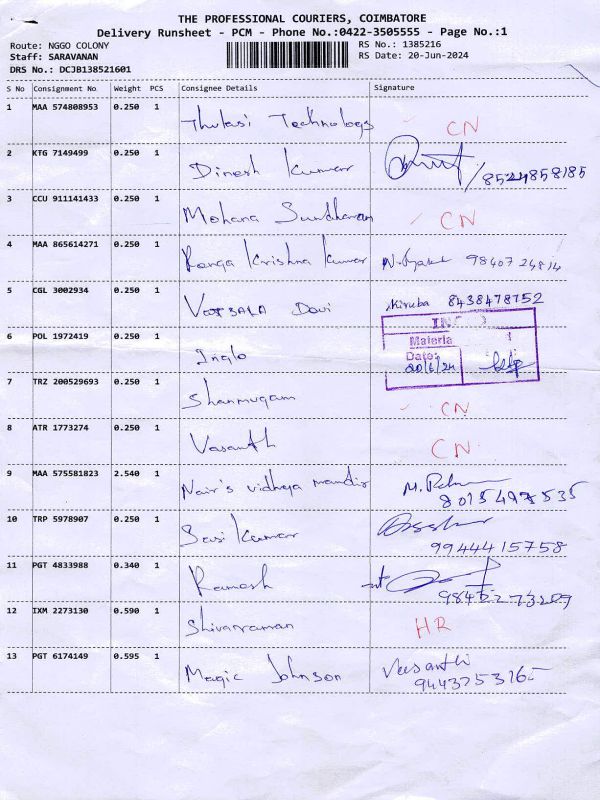 THE PROFESSIONAL COURIERS, COIMBATORE
Delivery Runsheet - PCM - Phone No.:0422-3505555 - Page No.:1
Route: NGGO COLONY RS No.: 1385216
Staff: SARAVANAN RS Date: 20-Jun-2024
DRS No.: DCJB138521601
S No Consignment No. Weight PCS Consignee Details Signature
1 MAA 574808953 0.250 1 Thulasi Technology CN
2 KTG 7149499 0.250 1 Dinesh kumar /8524858185
3 CCU 911141433 0.250 1 Mohana Sundharam CN
4 MAA 865614271 0.250 1 Ranga Krishna kumar 98407 24814
5 CGL 3002934 0.250 1 Devi Kiruba 8438478752
6 POL 1972419 0.250 1 Inglo
Date:
20/6/24
7 TRZ 200529693 0.250 1 Shanmugam CN
8 ATR 1773274 0.250 1 Vasanth CN
9 MAA 575581823 2.540 1 Nair's vidhya mandir
10 TRP 5978907 0.250 1 Sasi kumar 9944415758
11 PGT 4833988 0.340 1 Ramesh
12 IXM 2273130 0.590 1 Shivaraman HR
13 PGT 6174149 0.595 1 Magic Johnson Vasanthi